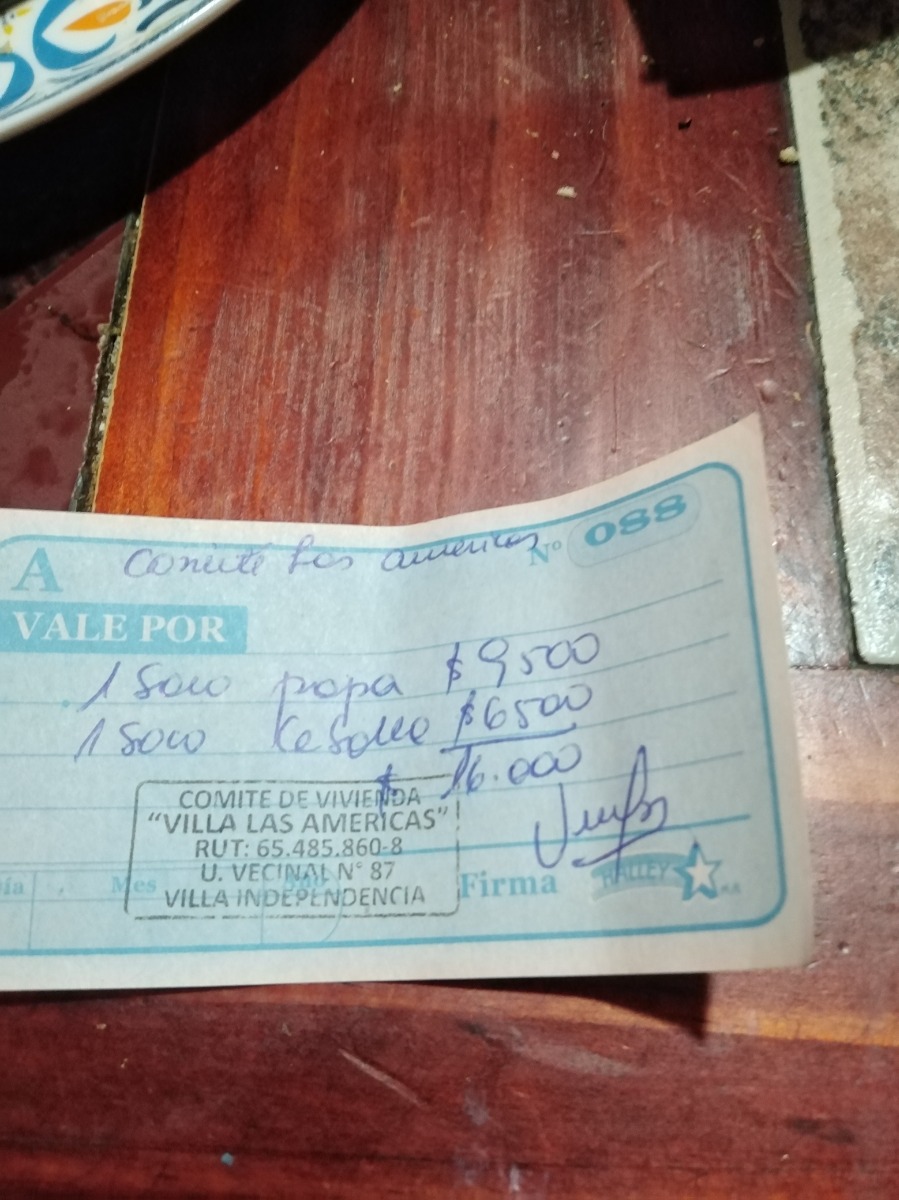 A Comité Las americas Nº 088
VALE POR
1 Saco papa $9500
1 Saco $6500
$ 16.000
COMITE DE VIVIENDA
"VILLA LAS AMERICAS"
RUT: 65.485.860-8
U. VECINAL N° 87
VILLA INDEPENDENCIA
ía Mes
Firma HALLEY